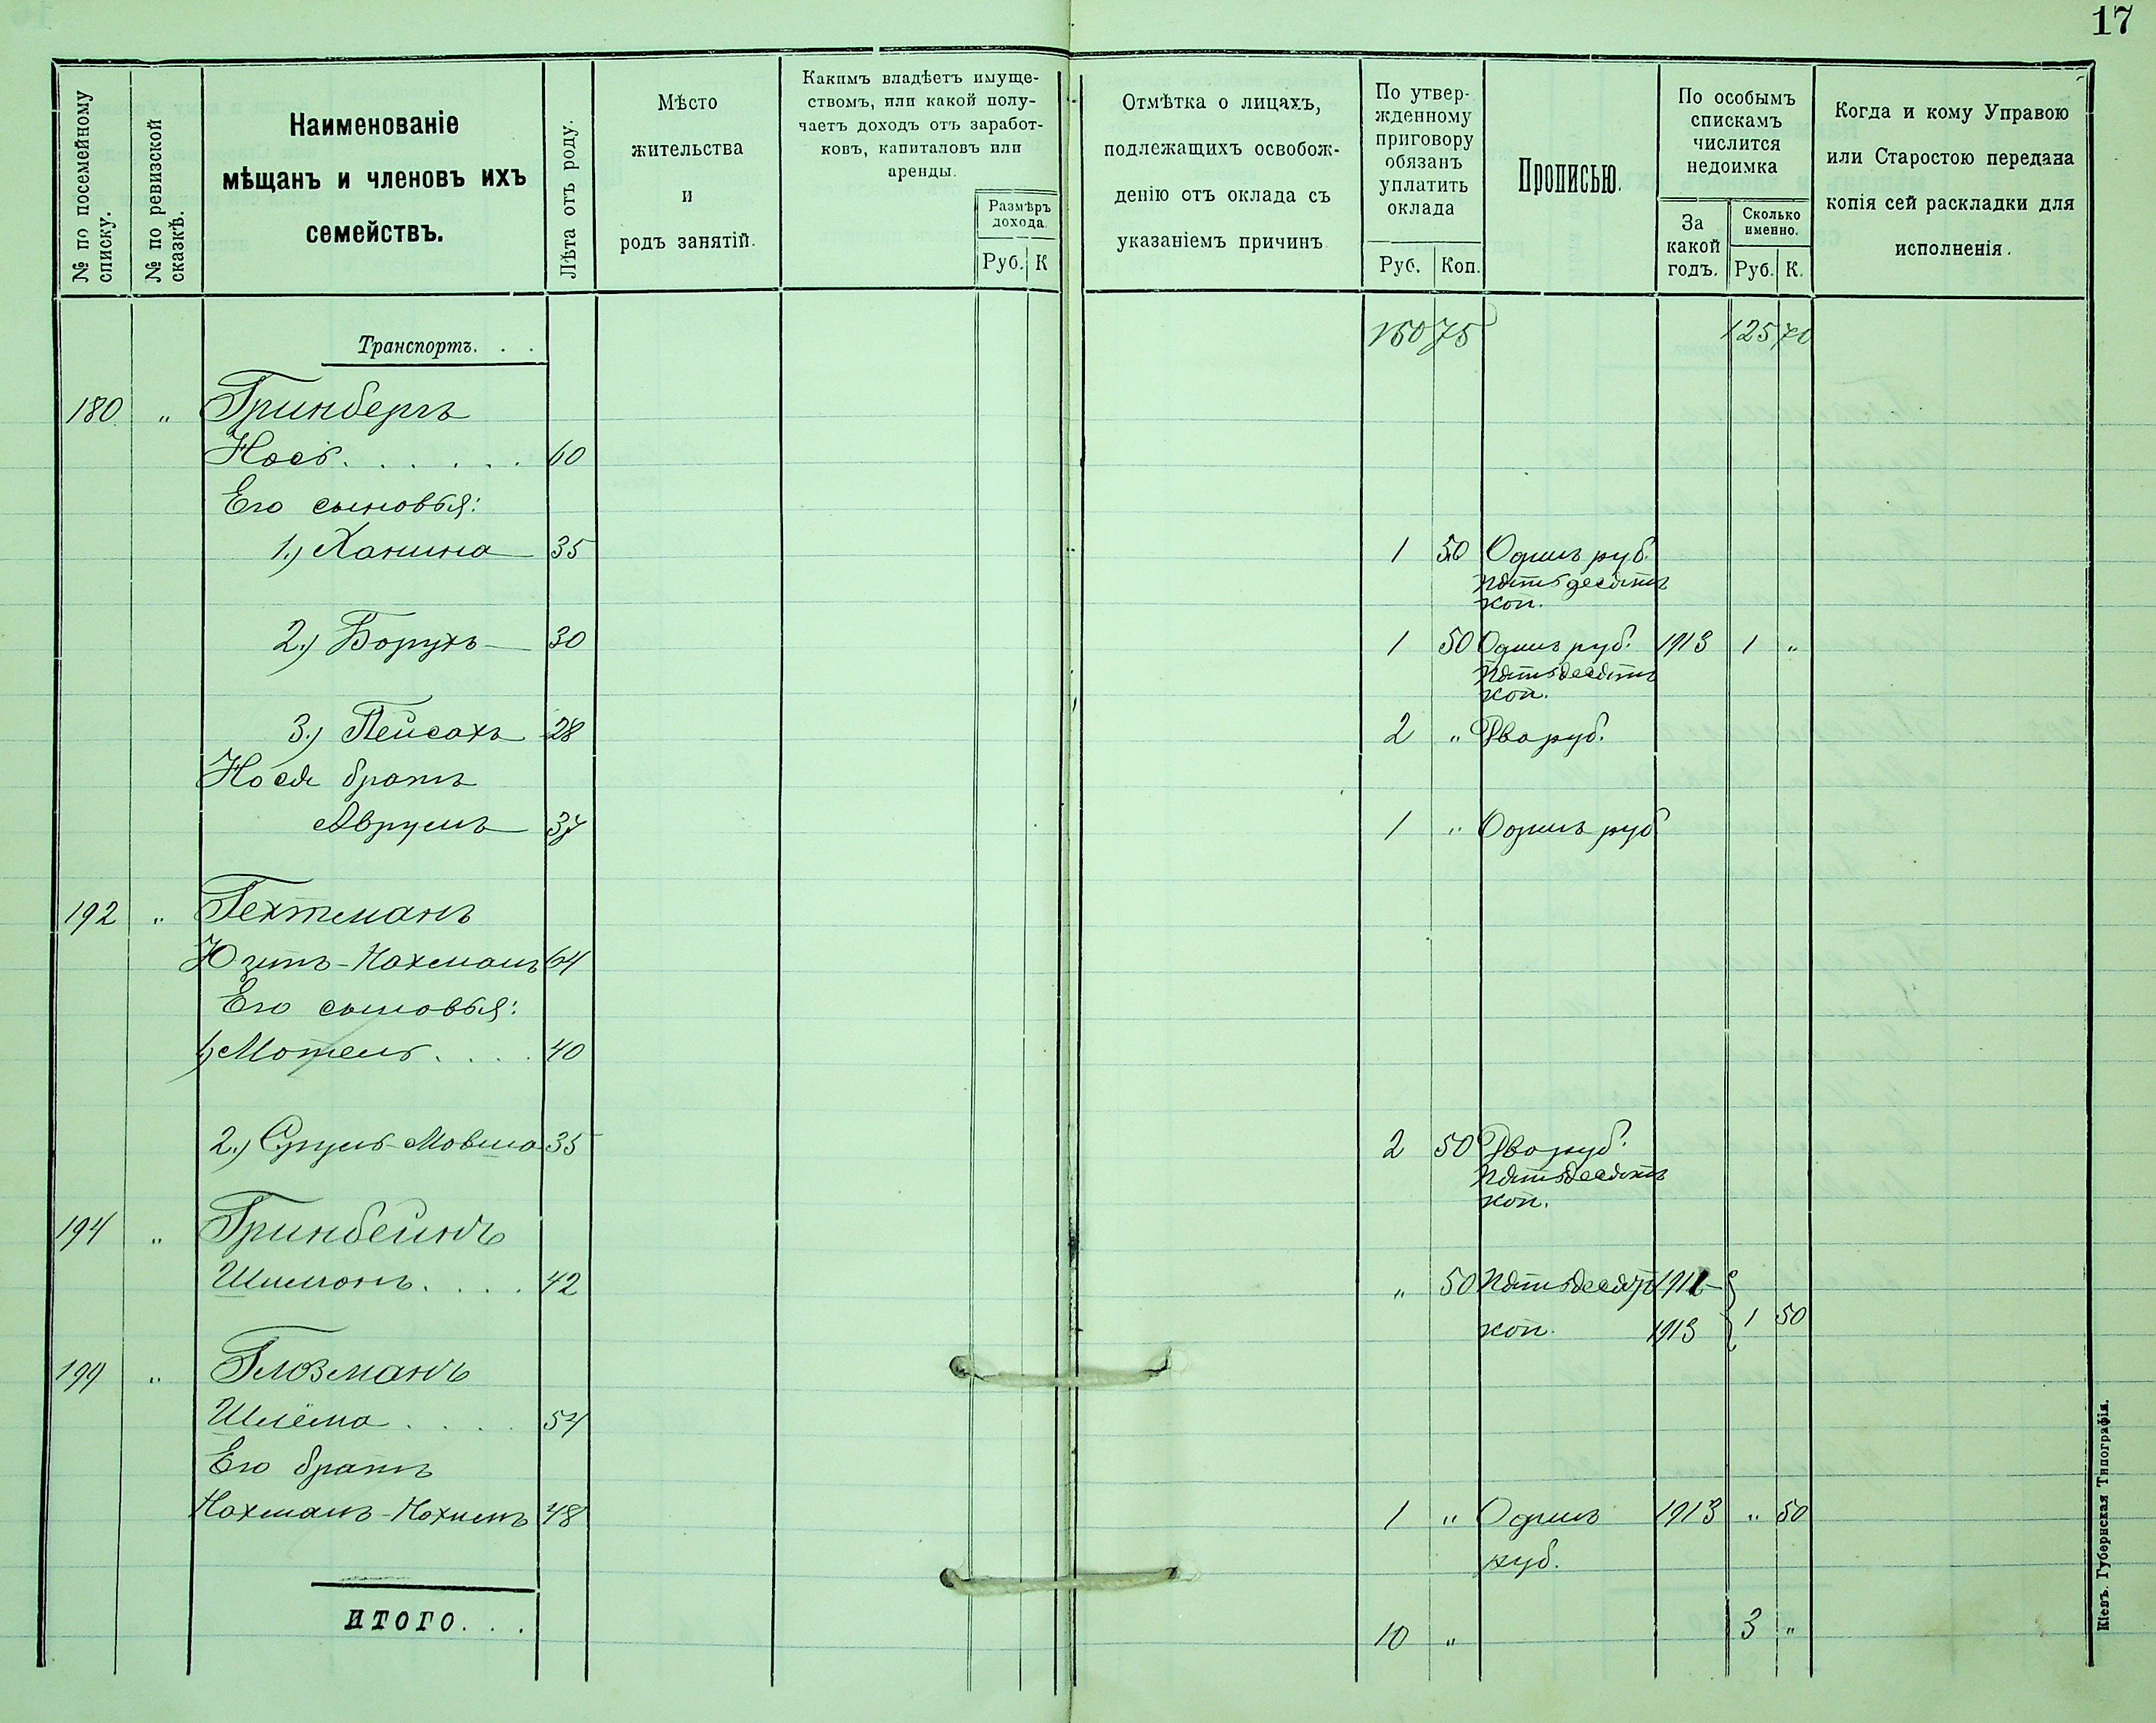 17
№ по посемейному списку.
№ по ревизской сказкѣ.
Наименованіе мѣщанъ и членовъ ихъ семействъ.
Лѣта отъ роду.
Мѣсто жительства и родъ занятій.
Какимъ владѣетъ имуще-
ствомъ, или какой полу-
чаетъ доходъ отъ заработ-
ковъ, капиталовъ или
аренды.
Размѣръ дохода.
Руб. К
Отмѣтка о лицахъ,
подлежащихъ освобож-
денію отъ оклада съ
указаніемъ причинъ
По утвер-
жденному
приговору
обязанъ
уплатить
оклада
Руб. Коп.
Прописью.
По особымъ
спискамъ
числится
недоимка
За какой годъ.
Сколько именно.
Руб. К.
Когда и кому Управою
или Старостою передана
копія сей раскладки для
исполненія.
Транспортъ. . . 150 75 125 70
180 " Гринбергъ
Нось . . . . . . 60
Его сыновья:
1.) Ханина 35 1 50 Одинъ руб.
пятьдесятъ
коп.
2.) Борухъ 30 1 50 Одинъ руб. 1913 1 "
пятьдесятъ
коп.
3.) Пейсахъ 28 2 " Два руб.
Нося братъ
Аврумъ 37 1 " Одинъ руб
192 " Гехтманъ
-Нахманъ 64
Его сыновья:
1) Мотель . . . . 40
2.) Сруль-Мовша 35 2 50 Два руб.
пятьдесятъ
коп.
194 " Гринбейнъ
Шимонъ . . . . 42 " 50 Пятьдесятъ 1912
коп. 1913 1 50
199 " Глозманъ
Шлёма . . . . 54
Его братъ
Нахманъ-Нахимъ 48 1 " Одинъ 1913 " 50
руб.
ИТОГО. . . 10 " 3 "
Кіевъ. Губернская Типографія.